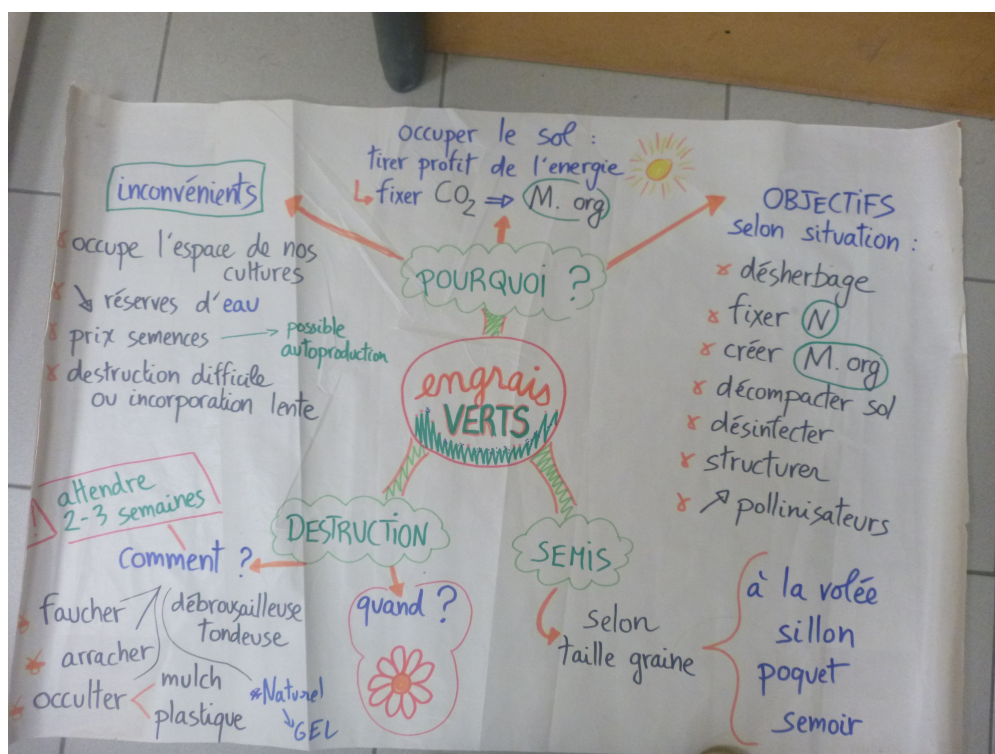 engrais
VERTS
POURQUOI ?
occuper le sol :
tirer profit de l'energie
fixer CO₂ ⇒ M. org
inconvénients
occupe l'espace de nos
cultures
↘ réserves d'eau
prix semences → possible
autoproduction
destruction difficile
ou incorporation lente
OBJECTIFS
selon situation :
désherbage
fixer N
créer M. org
décompacter sol
désinfecter
structurer
↗ pollinisateurs
DESTRUCTION
! attendre
2-3 semaines
comment ?
faucher
débroussailleuse
tondeuse
arracher
occulter
mulch
plastique
*Naturel
↘ GEL
quand ?
SEMIS
selon
taille graine
à la volée
sillon
poquet
semoir